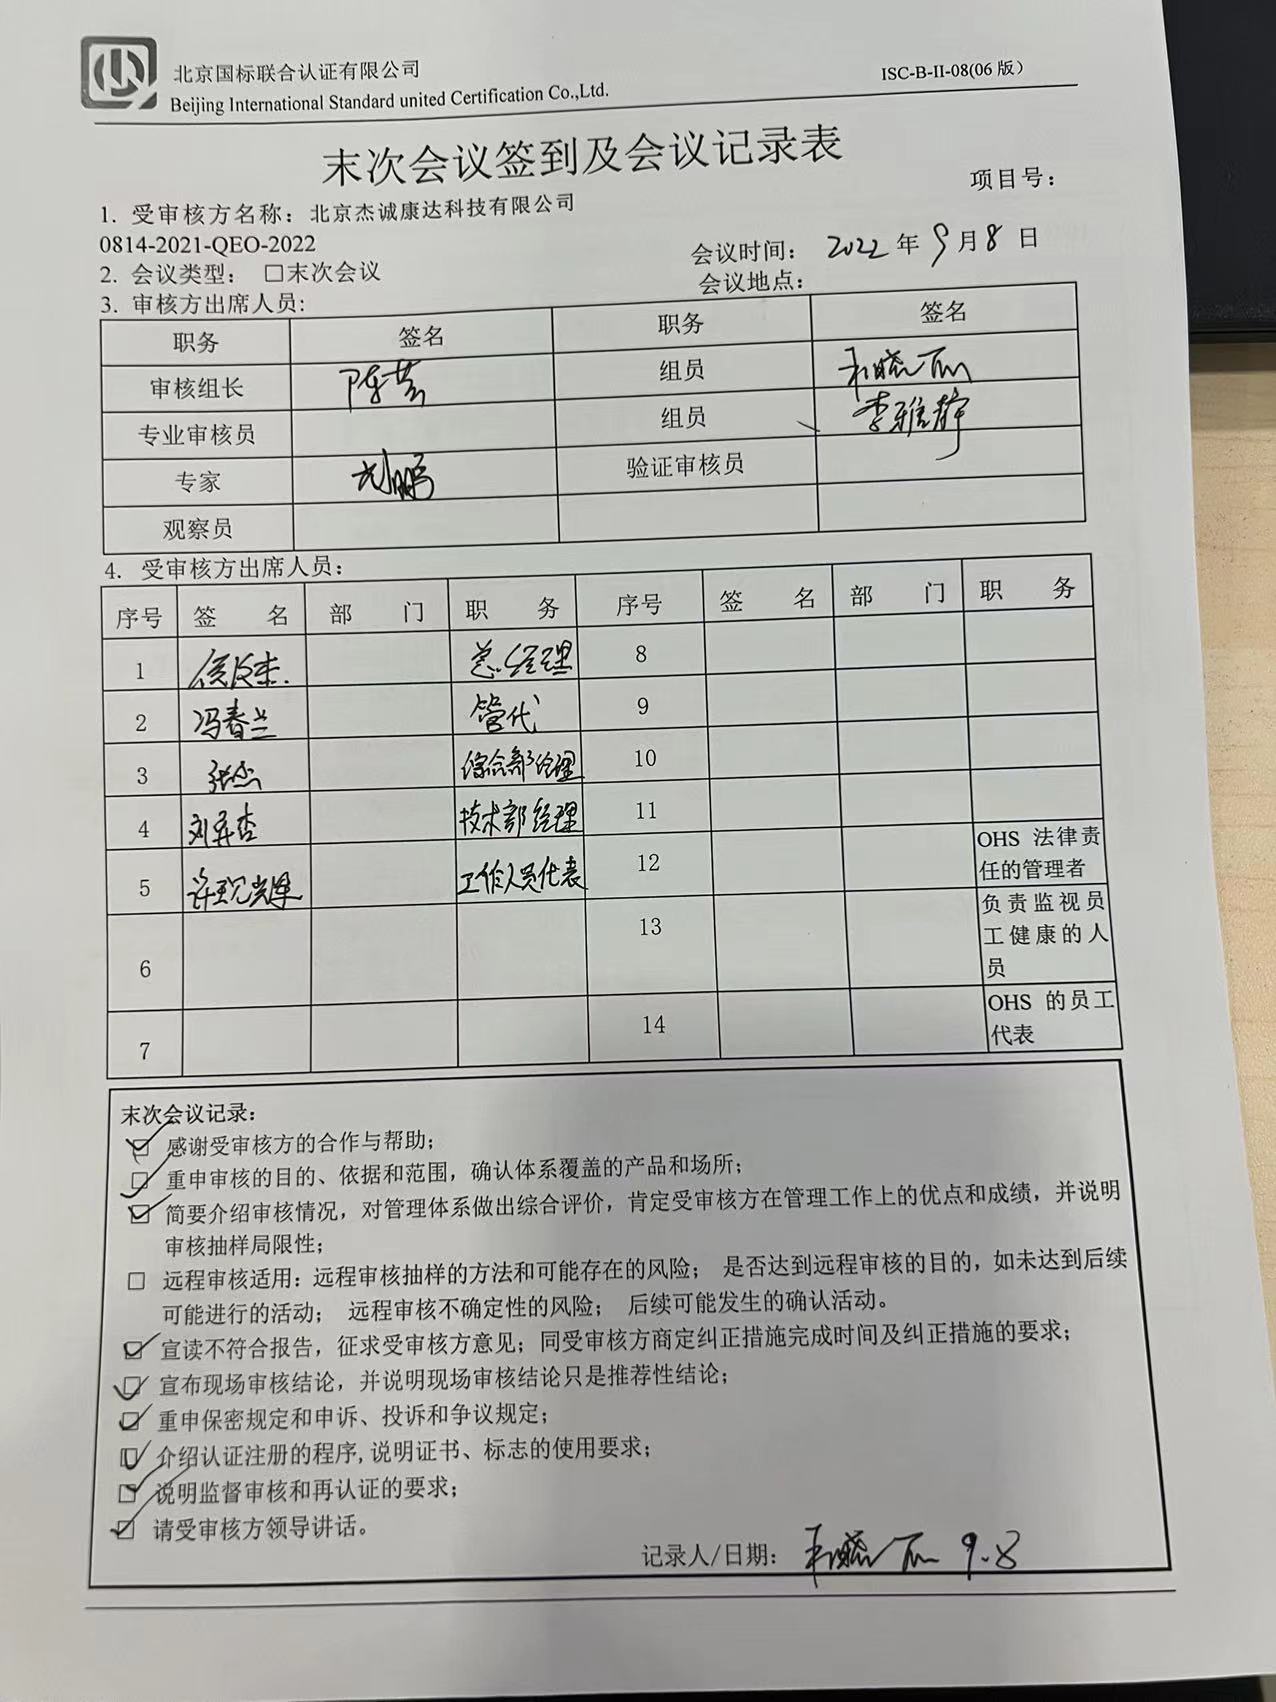 北京国标联合认证有限公司
Beijing International Standard united Certification Co.,Ltd.
ISC-B-II-08(06 版)
末次会议签到及会议记录表
项目号：
1. 受审核方名称：北京杰诚康达科技有限公司
0814-2021-QEO-2022
会议时间： 2022 年 9 月 8 日
2. 会议类型： □末次会议
会议地点：
3. 审核方出席人员:
职务 签名 职务 签名
审核组长 陈芸 组员
专业审核员 组员 李雅静
专家 验证审核员
观察员
4. 受审核方出席人员：
序号 签 名 部 门 职 务 序号 签 名 部 门 职 务
1 总经理 8
2 冯春兰 管代 9
3 张杰 综合部经理 10
4 技术部经理 11
5 工作人员代表 12 OHS 法律责任的管理者
6 13 负责监视员工健康的人员
7 14 OHS 的员工代表
末次会议记录：
☑ 感谢受审核方的合作与帮助；
☑ 重申审核的目的、依据和范围，确认体系覆盖的产品和场所；
☑ 简要介绍审核情况，对管理体系做出综合评价，肯定受审核方在管理工作上的优点和成绩，并说明
审核抽样局限性；
□ 远程审核适用：远程审核抽样的方法和可能存在的风险； 是否达到远程审核的目的，如未达到后续
可能进行的活动； 远程审核不确定性的风险； 后续可能发生的确认活动。
☑ 宣读不符合报告，征求受审核方意见；同受审核方商定纠正措施完成时间及纠正措施的要求；
☑ 宣布现场审核结论，并说明现场审核结论只是推荐性结论；
☑ 重申保密规定和申诉、投诉和争议规定；
☑ 介绍认证注册的程序,说明证书、标志的使用要求；
☑ 说明监督审核和再认证的要求；
☑ 请受审核方领导讲话。
记录人/日期： 9.8